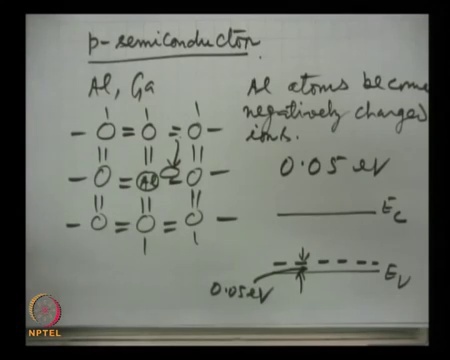 p-semiconductor.
Al, Ga
Al atoms become
negatively charged
ions.
0.05 eV
Al
Ec
Ev
0.05 eV
NPTEL